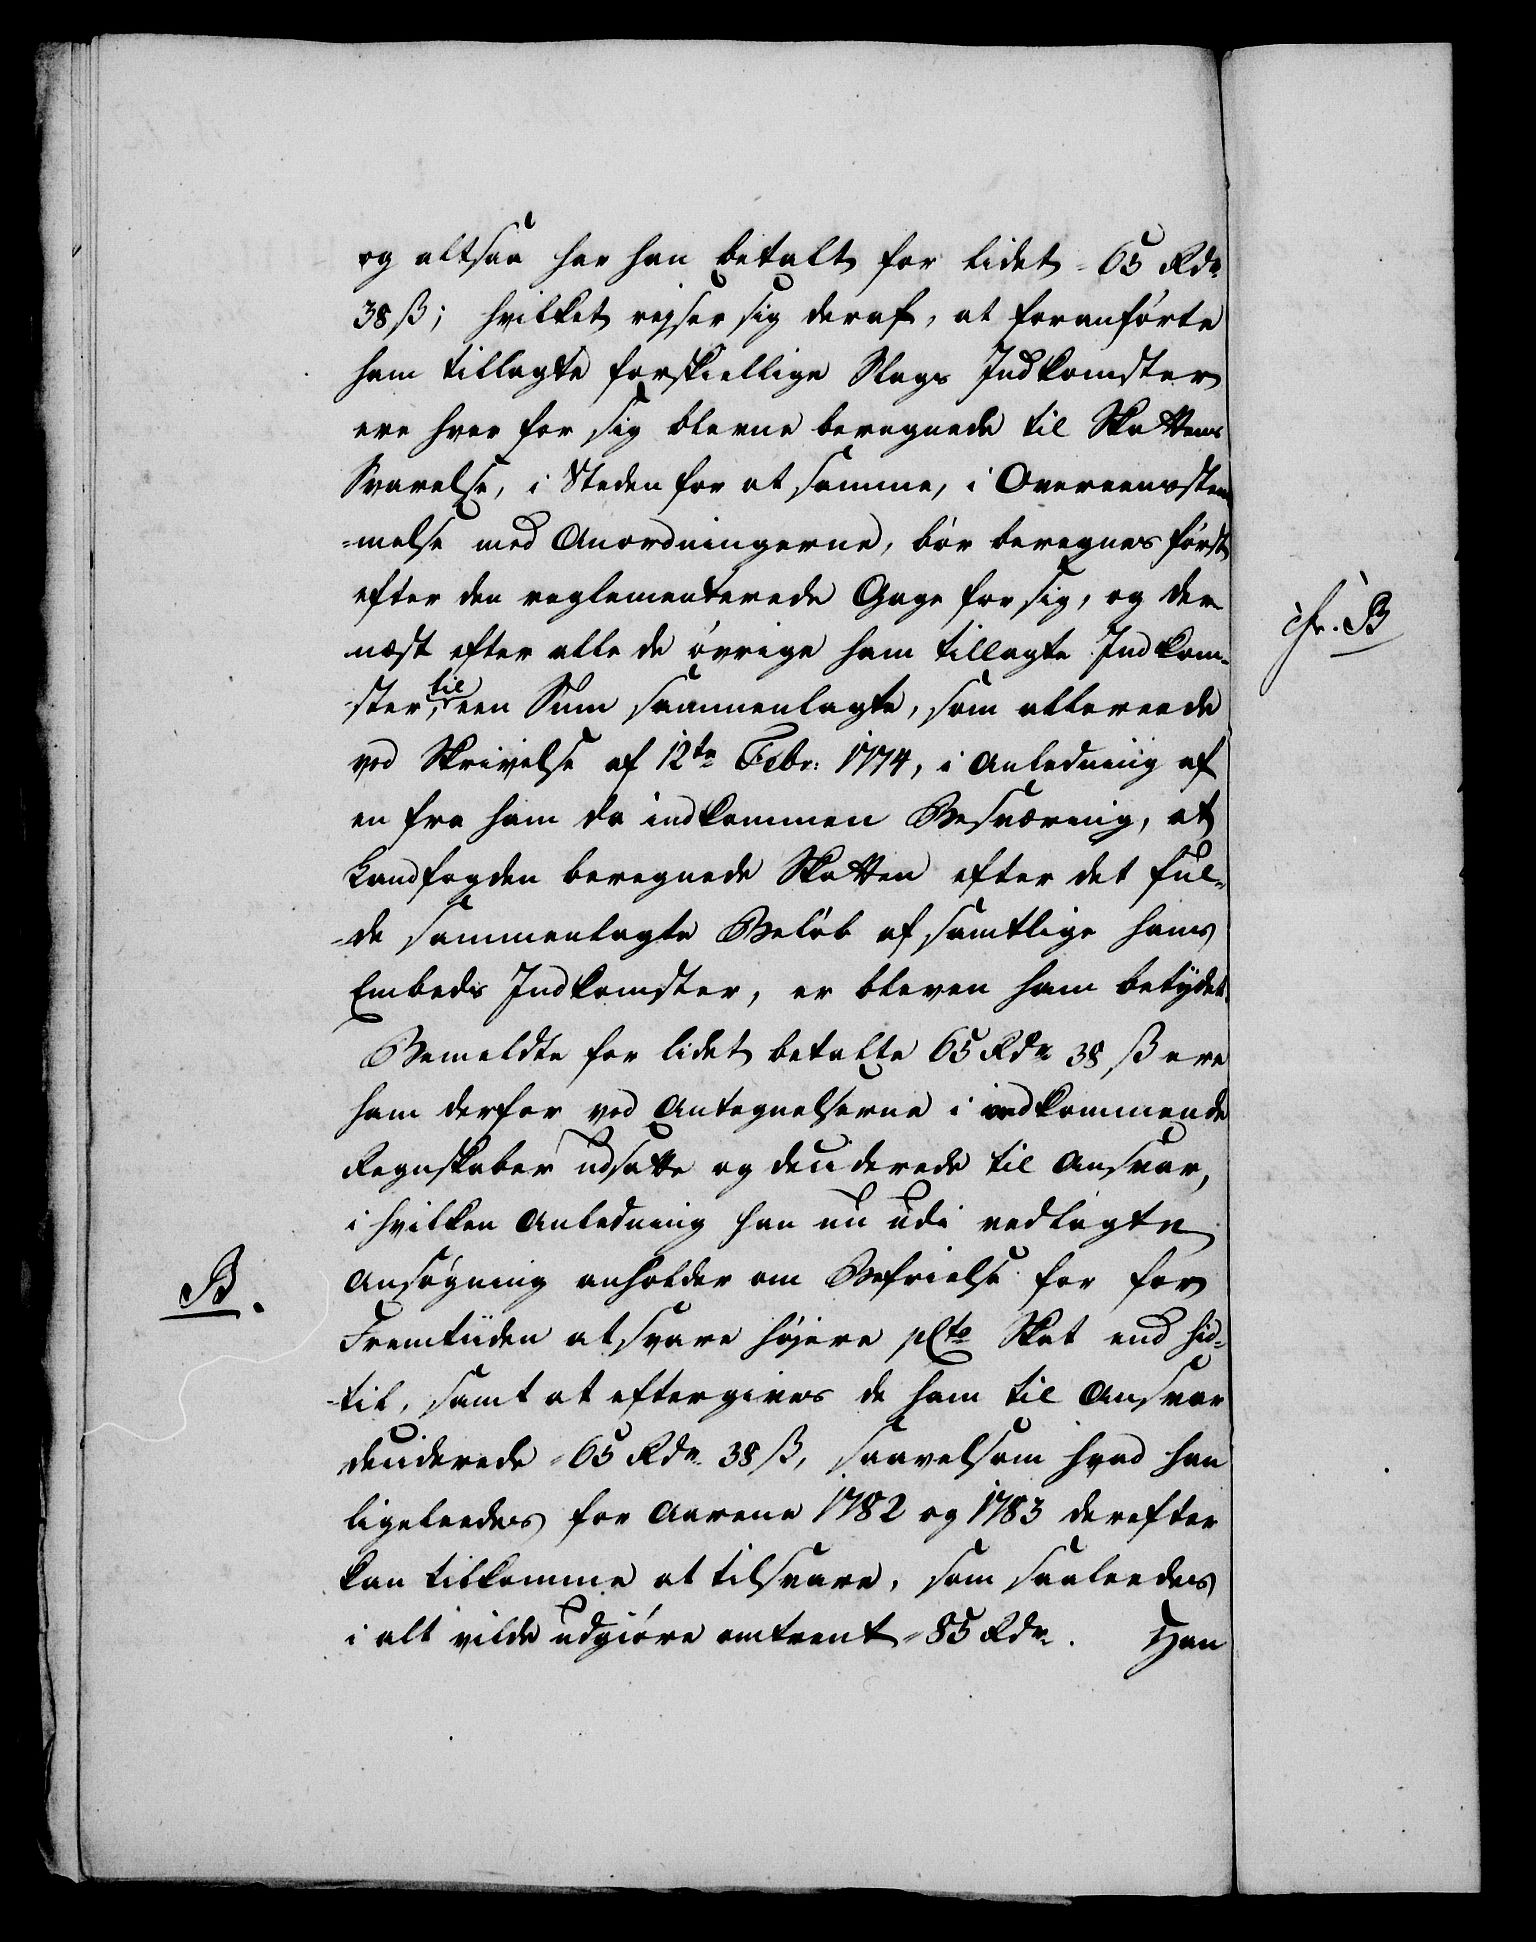 og altsaa har han betalt for lidet - 65 Rdr
38 ß; hvilket rejser sig deraf, at foranførte
ham tillagte forskiellige Slags Indkomster
ere hver for sig blevne beregnede til Skattens
Svarelse, i Steden for at samme, i Overeensstem
=melse med Anordningerne, bør beregnes først
efter den reglementerede Gage for sig, og der
næst efter alle de øvrige ham tillagte Indkom-
-ster, til een Sum sammenlagte, som allereede
ved Skrivelse af 12te Febr: 1774, i Anledning af
en fra ham da indkommen Besværing, at
Landfogden beregnede Skatten efter det ful-
-de sammenlagte Beløb af samtlige hans
Embeds Indkomster, er bleven ham betydet.
Bemeldte for lidet betalte 65 Rdr 38 ß ere
ham derfor ved Antegnelserne i vedkommende
Regnskaber udsatte og deciderede til Ansvar,
i hvilken Anledning han nu udi vedlagte
B.
Ansøgning anholder om Befrielse for for
Fremtiiden at svare højere pCto Skat end hid-
-til, samt at eftergives de ham til Ansvar
deciderede - 65 Rdr 38 ß, saavelsom hvad han
ligeleedes for Aarene 1782 og 1783 derefter
kan tilkomme at tilsvare, som saaleedes
i alt vilde udgiøre omtrent - 85 Rdr. Han
cfr. B